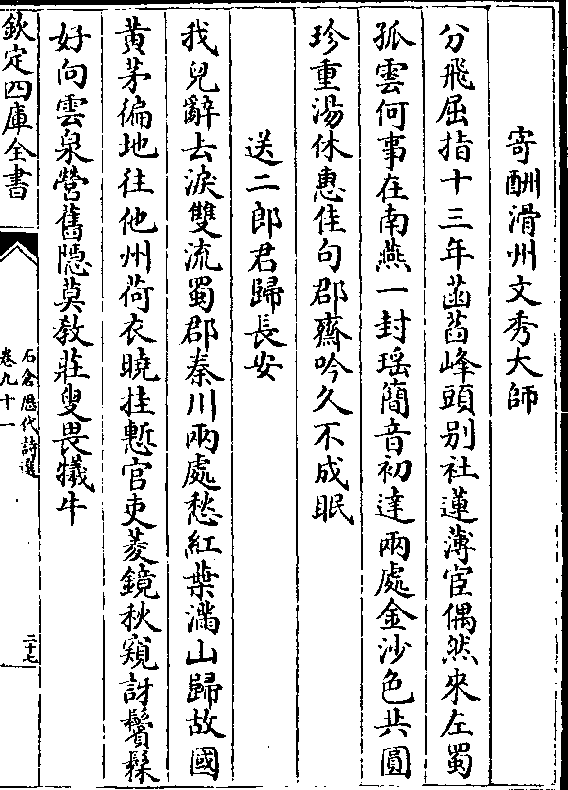 寄酬滑州文秀大師
分飛屈指十三年菡萏峰頭别社蓮薄宦偶然來左蜀
孤雲何事在南燕一封瑶簡音初達兩處金沙色共圓
珍重湯休惠佳句郡齋吟久不成眠
送二郎君歸長安
我兒辭去淚雙流蜀郡秦川兩處愁紅葉滿山歸故國
黄茅徧地往他州荷衣曉挂慙官吏菱鏡秋窺訝鬢髹
好向雲泉營舊隠莫教莊叟畏犧牛
欽定四庫全書
石倉歴代詩選
卷九十一
二十七